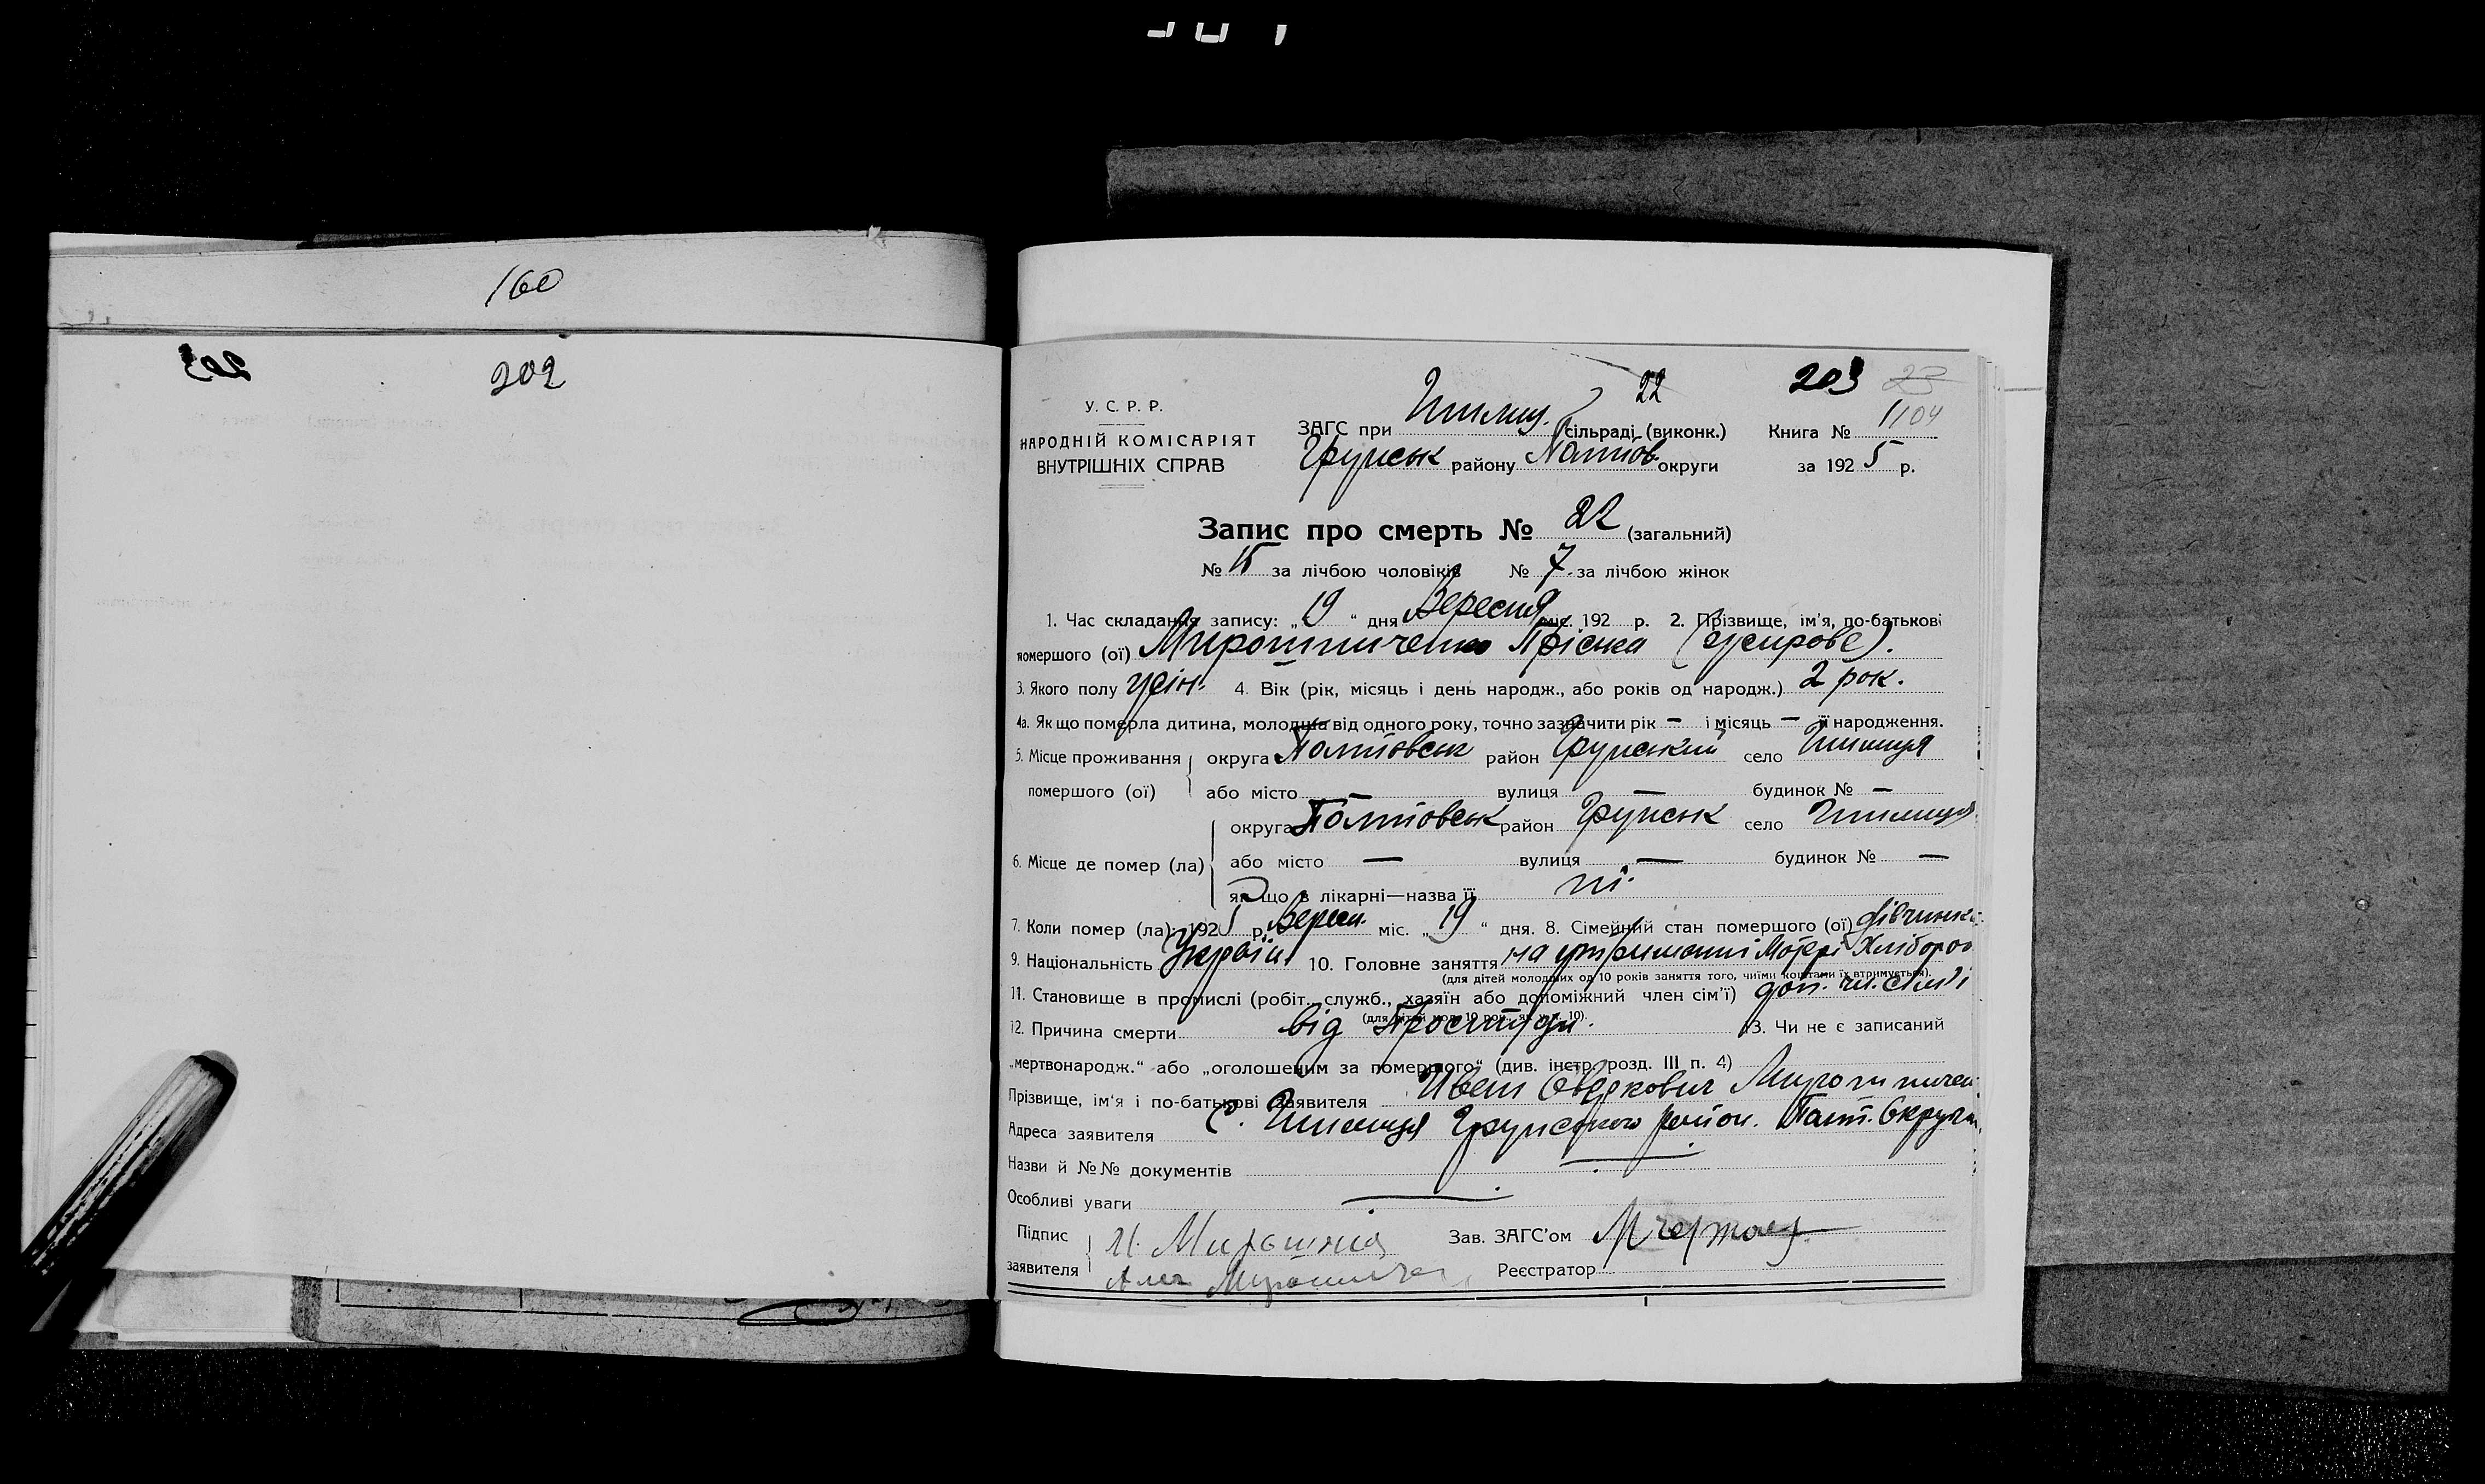 160
202
203
22
203 23
1104
У. С. Р. Р.
НАРОДНІЙ КОМІСАРІЯТ
ВНУТРІШНІХ СПРАВ
ЗАГС при сільраді (виконк.) Книга №
Грунськ району Полтов. округи за 1925 р.
Запис про смерть № 22 (загальний)
№ 15 за лічбою чоловіків № 7 за лічбою жінок
1. Час складання запису: „19“ дня Вересня міс. 192 р. 2. Прізвище, ім'я, по-батькові
помершого (ої) Мирошниченко Пріська
3. Якого полу жін. 4. Вік (рік, місяць і день народж., або років од народж.) 2 рок.
4а. Якщо померла дитина, молодша від одного року, точно зазначити рік – і місяць – її народження.
5. Місце проживання помершого (ої)
округа Полтовськ район Грунський село
або місто — вулиця — будинок № –
6. Місце де помер (ла)
округа Полтовськ район Грунськ село
або місто — вулиця — будинок № —
якщо в лікарні—назва її ні.
7. Коли помер (ла): 1925 р. Вересн. міс. „19“ дня. 8. Сімейний стан помершого (ої) дівчинка
9. Національність Україн. 10. Головне заняття на утриманні Матері Хлібороб
(для дітей молодших од 10 років заняття того, чиїми коштами їх втримується).
11. Становище в промислі (робіт., служб., хазяїн або допоміжний член сім'ї) доп. чл. сім'ї
(для дітей мол. 10 рок., як у п. 10).
12. Причина смерти від Простуди. 13. Чи не є записаний
„мертвонародж.“ або „оголошеним за померлого“ (див. інстр. розд. III п. 4)
Прізвище, ім'я і по-батькові заявителя Иван Мирошничен
Адреса заявителя С. Грунського район. Полт. Округи
Назви й №№ документів —
Особливі уваги —
Підпис заявителя И. Мирошнич
Зав. ЗАГС'ом
Реєстратор